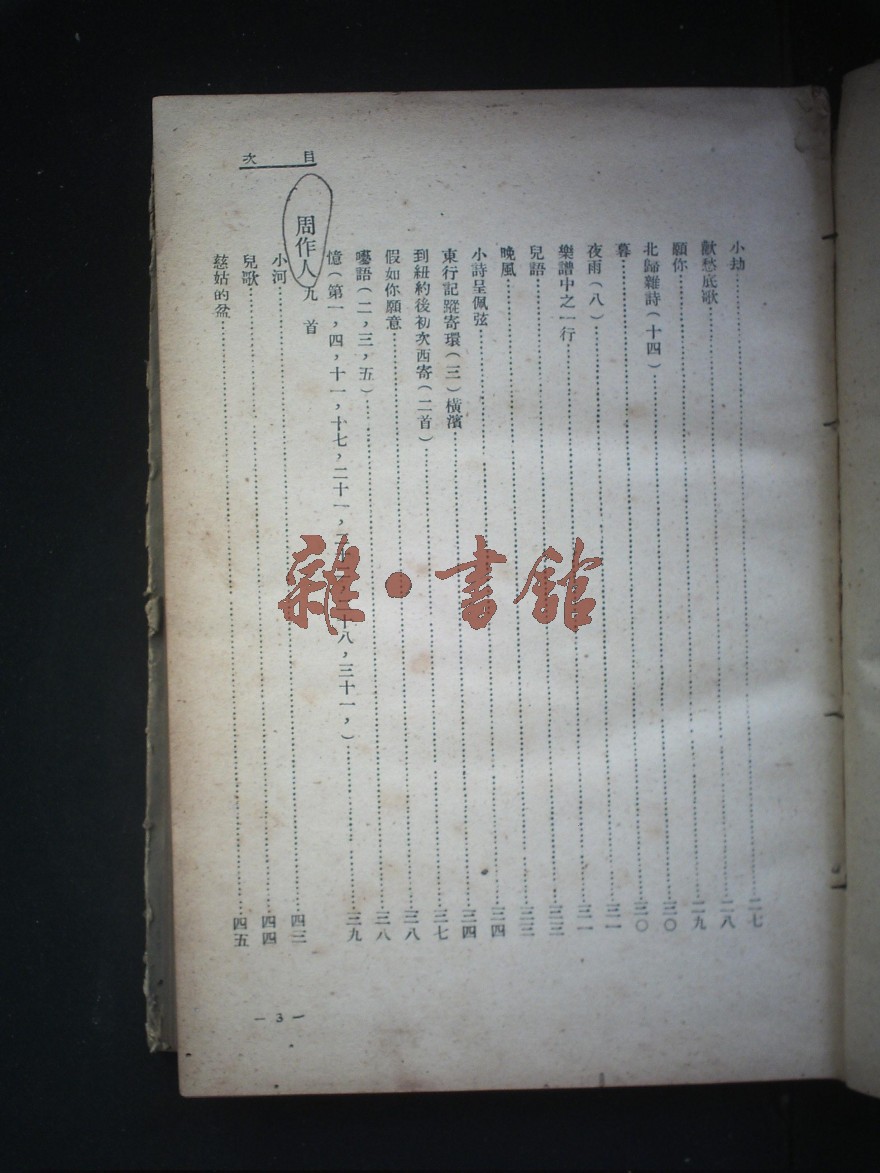 目次
小劫……二七
歡愁底歌……二八
願你……二九
北歸雜詩(十四)……三〇
暮……三〇
夜雨(八)……三一
樂譜中之一行……三一
兒語……三三
晚風……三三
小詩呈佩弦……三四
東行記蹤寄環(三)橫濱……三四
到紐約後初次西寄(二首)……三七
假如你願意……三八
囈語(二,三,五)……三八
憶(第一,四,十一,十七,二十一,十八,三十一,)……三九
周作人 九首
小河……四三
兒歌……四四
慈姑的盆……四五
— 3 —
雜·書館